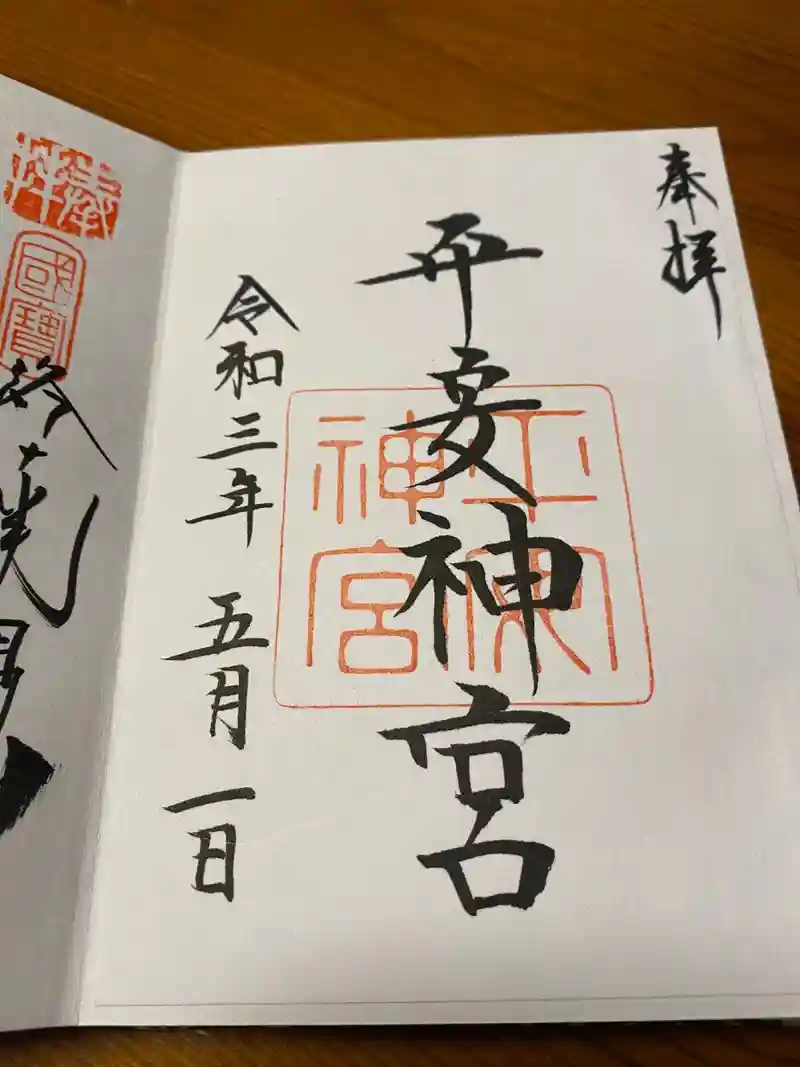 奉拝
平安神宮
平安神宮
令和三年 五月 一日
國寶